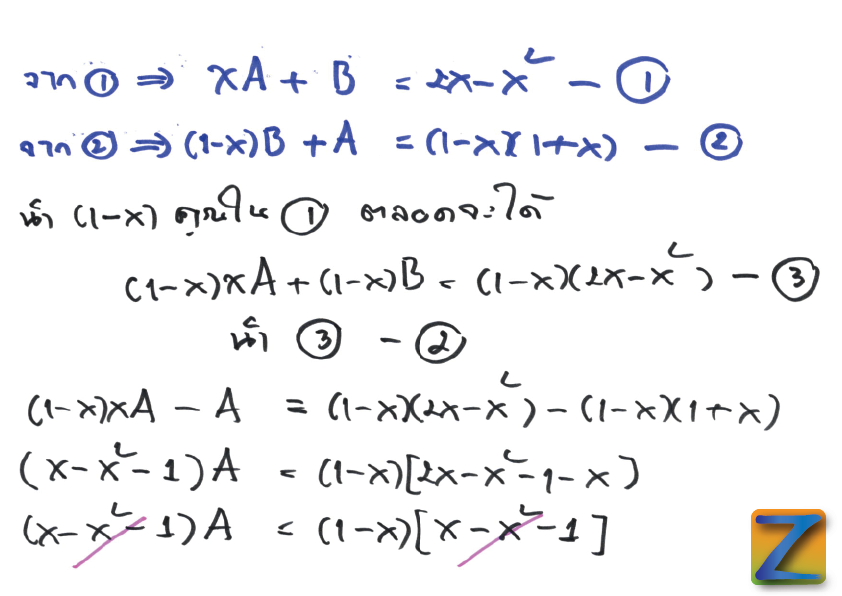 จาก ① ⇒ xA + B = 2x - x² - ①
จาก ② ⇒ (1-x)B + A = (1-x)(1+x) - ②
นำ (1-x) คูณใน ① ตลอดจะได้
(1-x)xA + (1-x)B = (1-x)(2x-x²) - ③
นำ ③ - ②
(1-x)xA - A = (1-x)(2x-x²) - (1-x)(1+x)
(x-x²-1)A = (1-x)[2x-x²-1-x)
(x-x²-1)A = (1-x)[x-x²-1]
Z